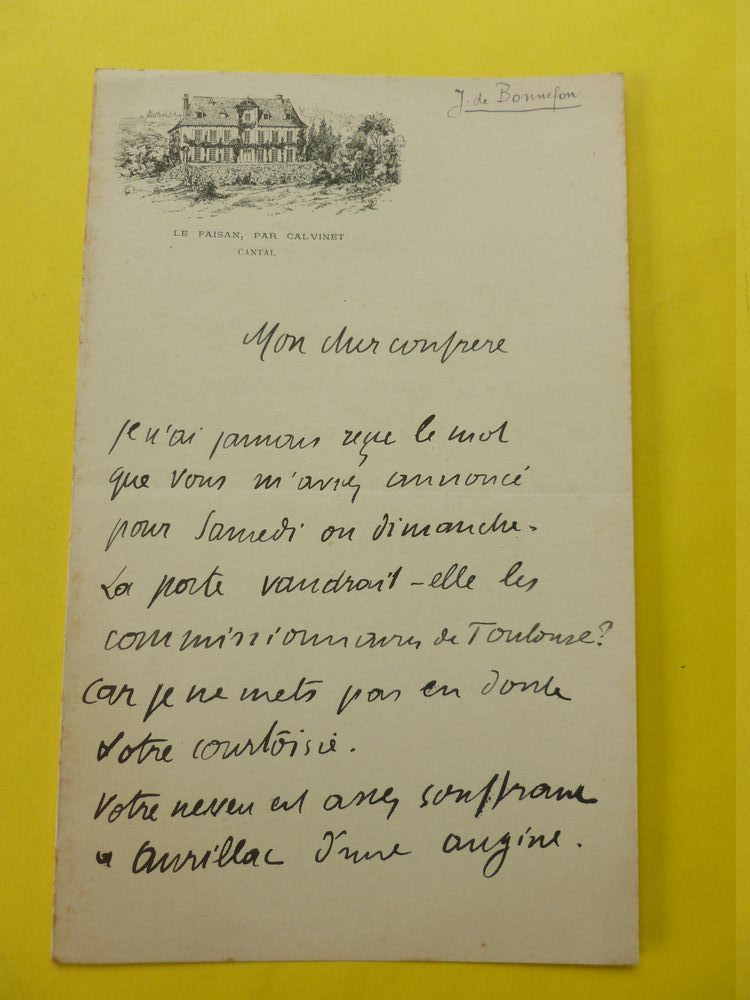 J. de Bonnefon
LE FAISAN, PAR CALVINET
CANTAL
Mon cher confrere
Je n'ai jamais reçu le mot
que vous m'aviez annoncé
pour Samedi ou dimanche.
La poste vaudrait-elle les
commissionnaires de Toulouse?
Car je ne mets pas en doute
votre courtoisie.
Votre neveu est assez souffrant
à Aurillac d'une angine.